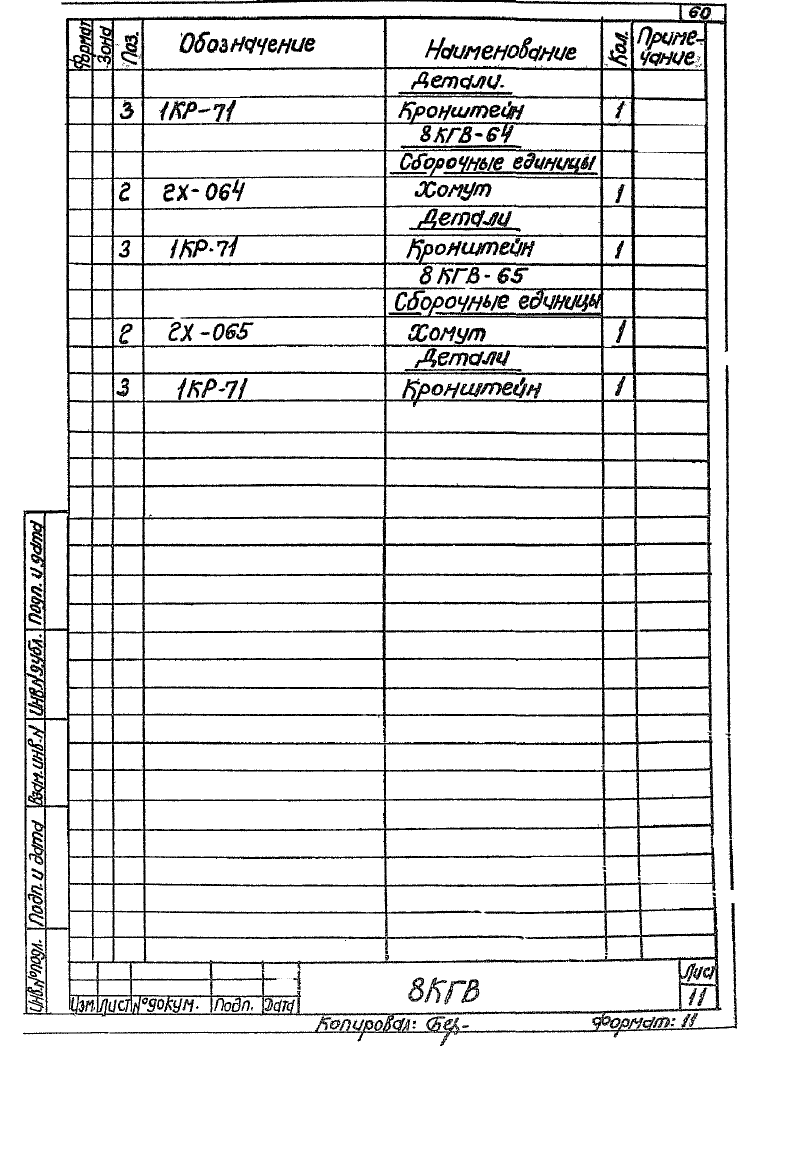 60
Формат Зона Поз. Обозначение Наименование Кол. Приме-
чание
Детали.
3 1КР-71 Кронштейн 1
8КГВ-64
Сборочные единицы
2 2Х-064 Хомут 1
Детали
3 1КР-71 Кронштейн 1
8КГВ-65
Сборочные единицы
2 2Х-065 Хомут 1
Детали
3 1КР-71 Кронштейн 1
Подп. и дата
Инв.N дубл.
Взам.инв.N
Подп. и дата
Инв.N°подл.
Изм. Лист N°докум. Подп. Дата
8КГВ
Лист
11
Копировал:
Формат: 11